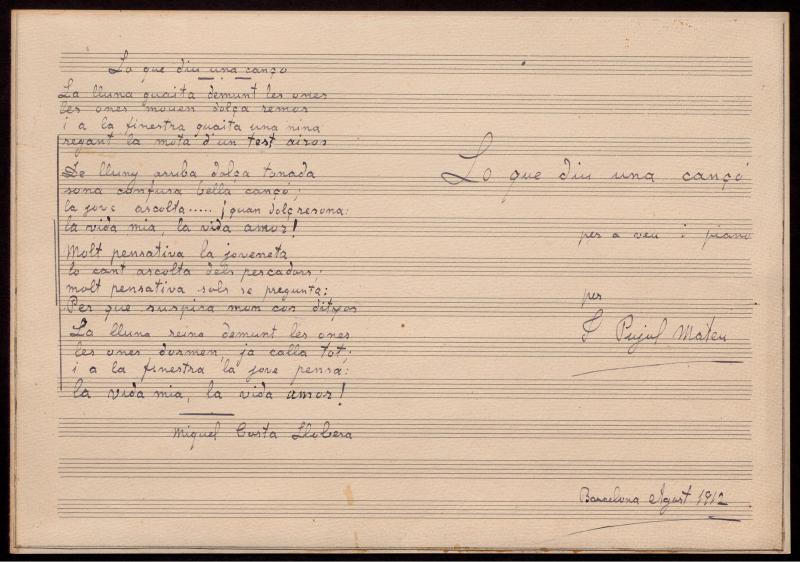 Lo que diu una canço
La lluna guaita demunt les ones
les ones mouen dolça remor
i a la finestra guaita una nina
regant la mota d'un test airos
De lluny arriba dolça tonada
sona confusa bella cançó;
la jove ascolta..... ¡quan dolç resona:
la vida mia, la vida amor!
Molt pensativa la joveneta
lo cant ascolta dels pescadors;
molt pensativa sols se pregunta:
Per que suspira mon cos ditxos
La lluna reina demunt les ones
les ones dormen, ja calla tot;
i a la finestra la jove pensa:
la vida mia, la vida amor!
Miquel Costa Llobera
Lo que diu una cançó
per a veu i piano
per
F Pujol Mateu
Barcelona Agost 1912